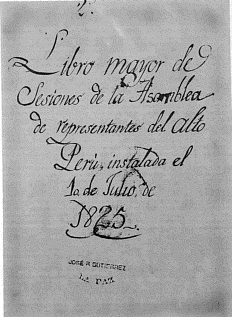 Libro mayor de
Sesiones de la Asamblea
de representantes del alto
Perú, instalada el
1o. de Julio, de
1825.
JOSÉ R. GUTIERREZ
LA PAZ